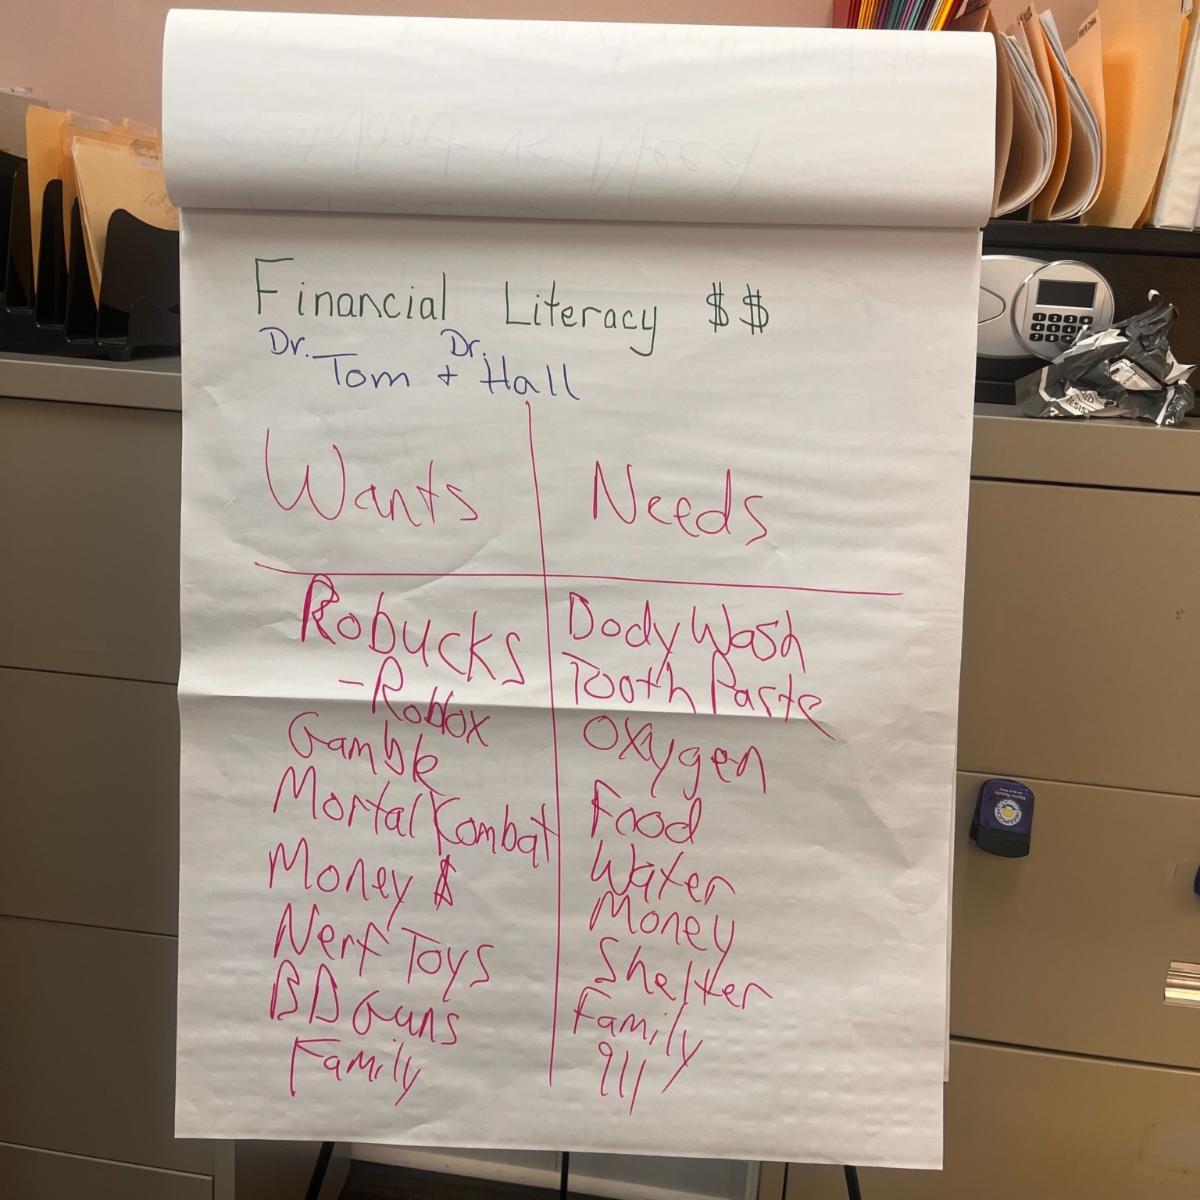 Financial Literacy $$
Dr. Tom + Dr. Hall
Wants
Robucks
-Roblox
Gamble
Mortal Kombat
Money $
Nerf Toys
BB Guns
Family
Needs
Body Wash
Tooth Paste
Oxygen
Food
Water
Money
Shelter
Family
911